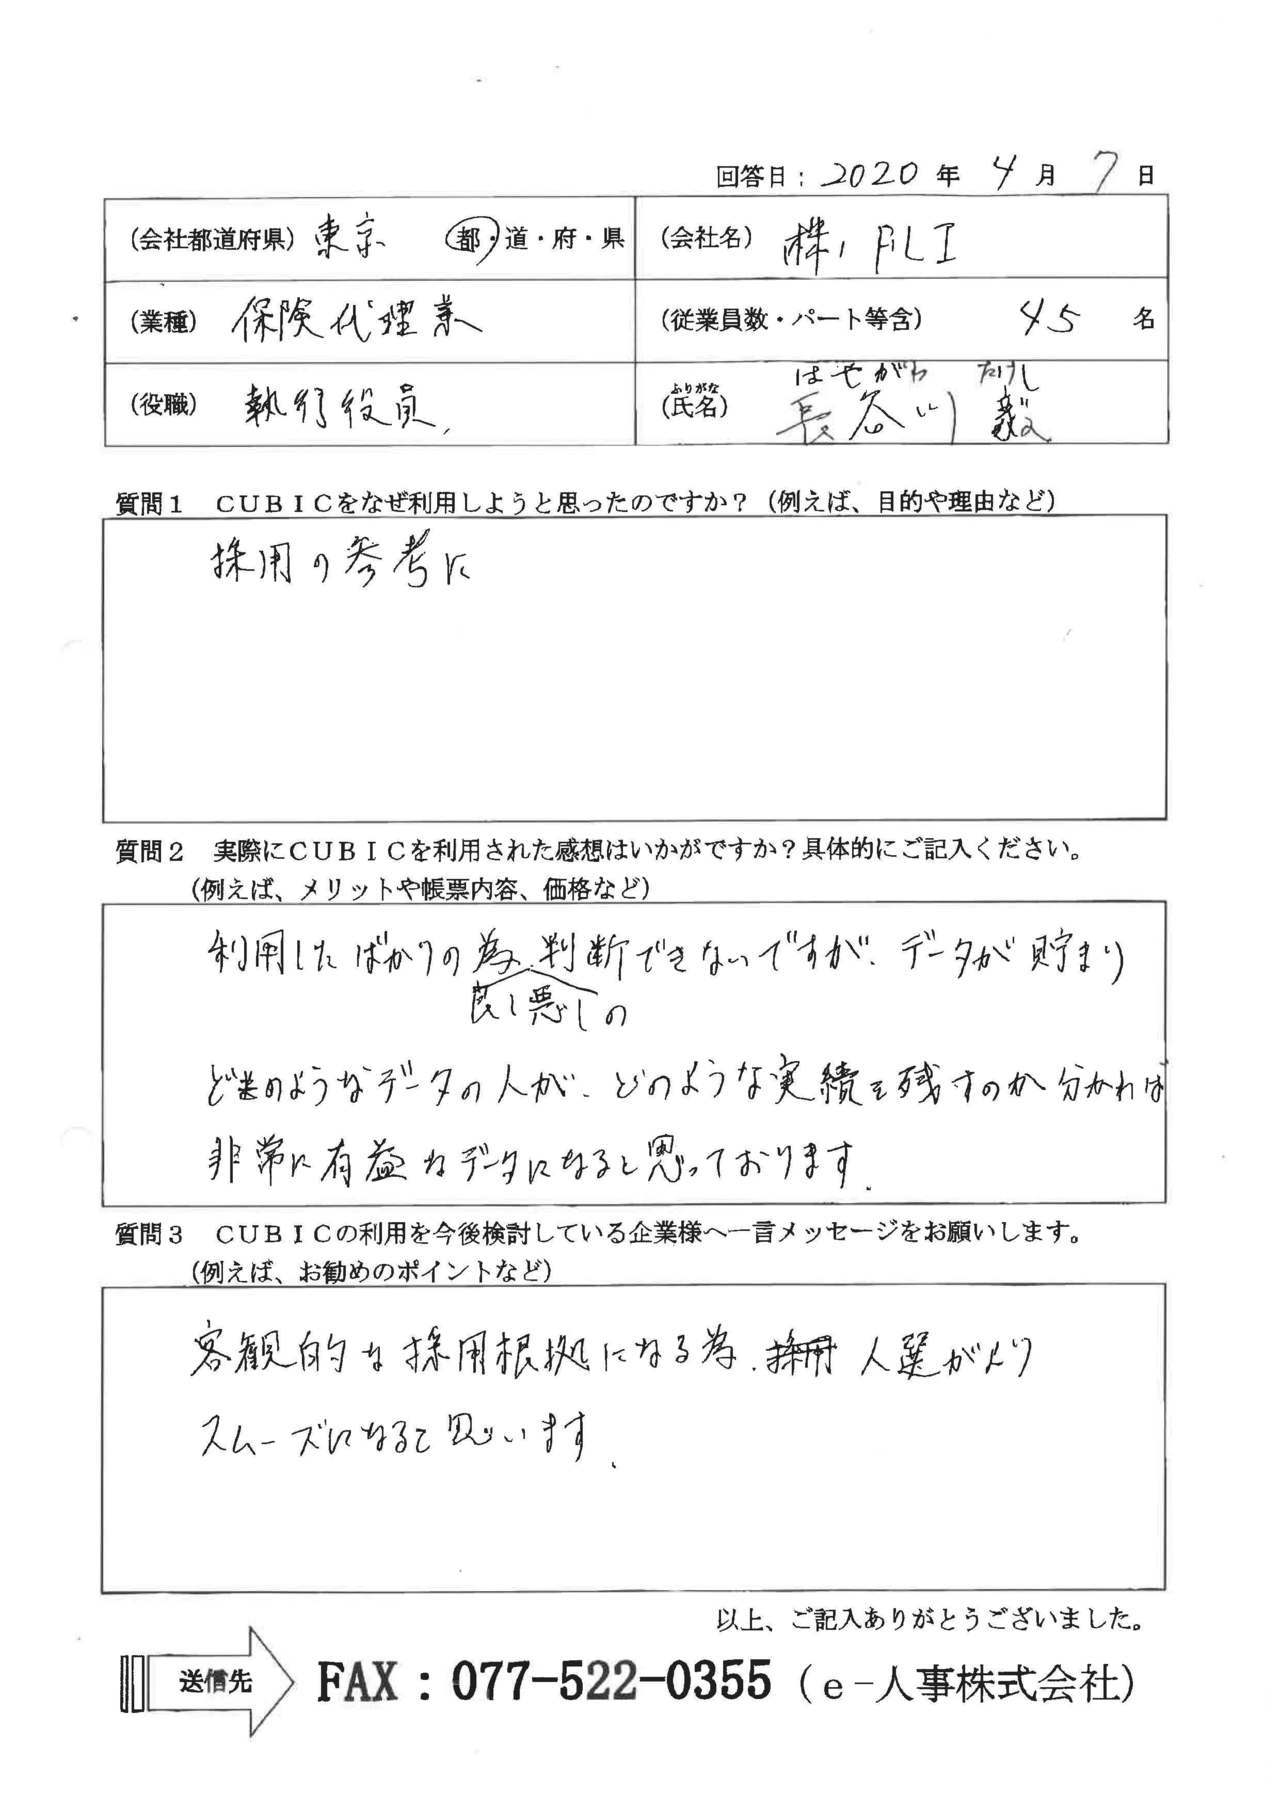 回答日：2020年 4月 7日
(会社都道府県) 東京 都・道・府・県
(会社名) 株, FLI
(業種) 保険代理業
(従業員数・パート等含) 45 名
(役職) 執行役員,
はせがわ たけし
ふりがな
(氏名) 長谷川 毅
質問１ ＣＵＢＩＣをなぜ利用しようと思ったのですか？（例えば、目的や理由など）
採用の参考に
質問２ 実際にＣＵＢＩＣを利用された感想はいかがですか？具体的にご記入ください。
（例えば、メリットや帳票内容、価格など）
利用したばかりの為、判断できないですが、データが貯まり
良し悪しの
どのようなデータの人が、どのような実績を残すのか分かれば
非常に有益なデータになると思っております。
質問３ ＣＵＢＩＣの利用を今後検討している企業様へ一言メッセージをお願いします。
（例えば、お勧めのポイントなど）
客観的な採用根拠になる為、採用 人選がより
スムーズになると思います。
以上、ご記入ありがとうございました。
送信先 FAX：077-522-0355（e-人事株式会社）